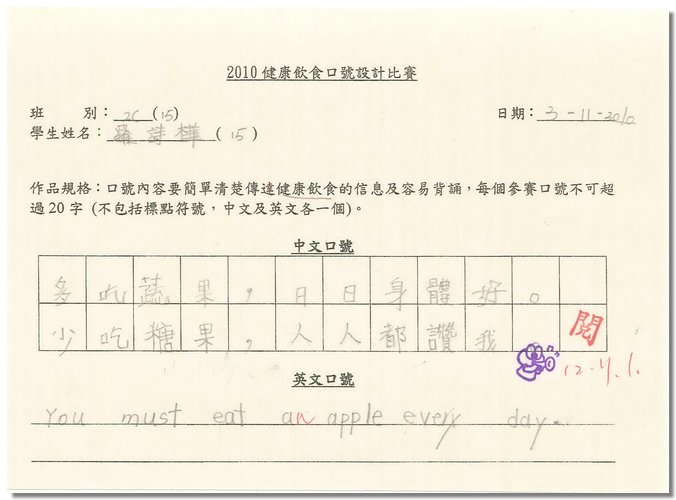 2010 健康飲食口號設計比賽
班 別：2C (15) 日期：3-11-2010
學生姓名：羅詩樺 (15)
作品規格：口號內容要簡單清楚傳達健康飲食的信息及容易背誦，每個參賽口號不可超
過20字 (不包括標點符號，中文及英文各一個)。
中文口號
多吃蔬果，日日身體好。
少吃糖果，人人都讚我
閱
英文口號
You must eat an apple every day.